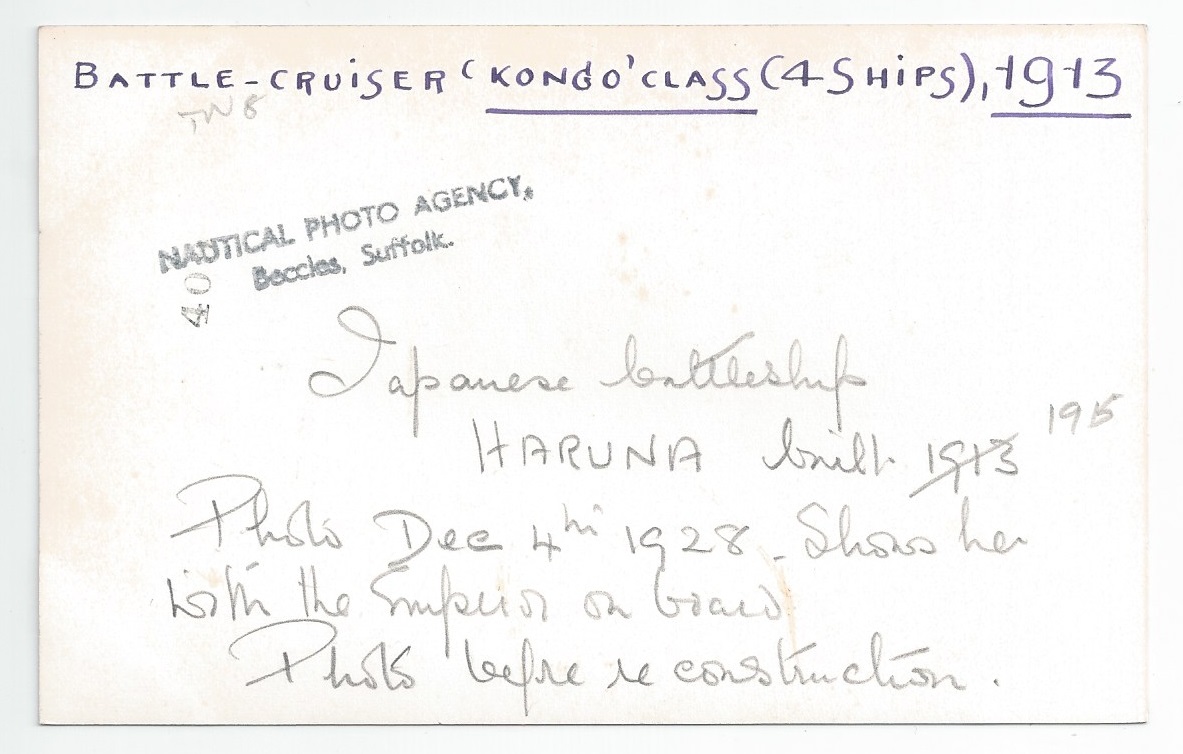 BATTLE-CRUISER 'KONGO' CLASS (4 SHIPS), 1913
JW 8
NAUTICAL PHOTO AGENCY,
Beccles, Suffolk.
40
Japanese battleship
1915
HARUNA built 1913
Photo Dec 4th 1928 - Shows her
with the Emperor on board
Photo before re construction.